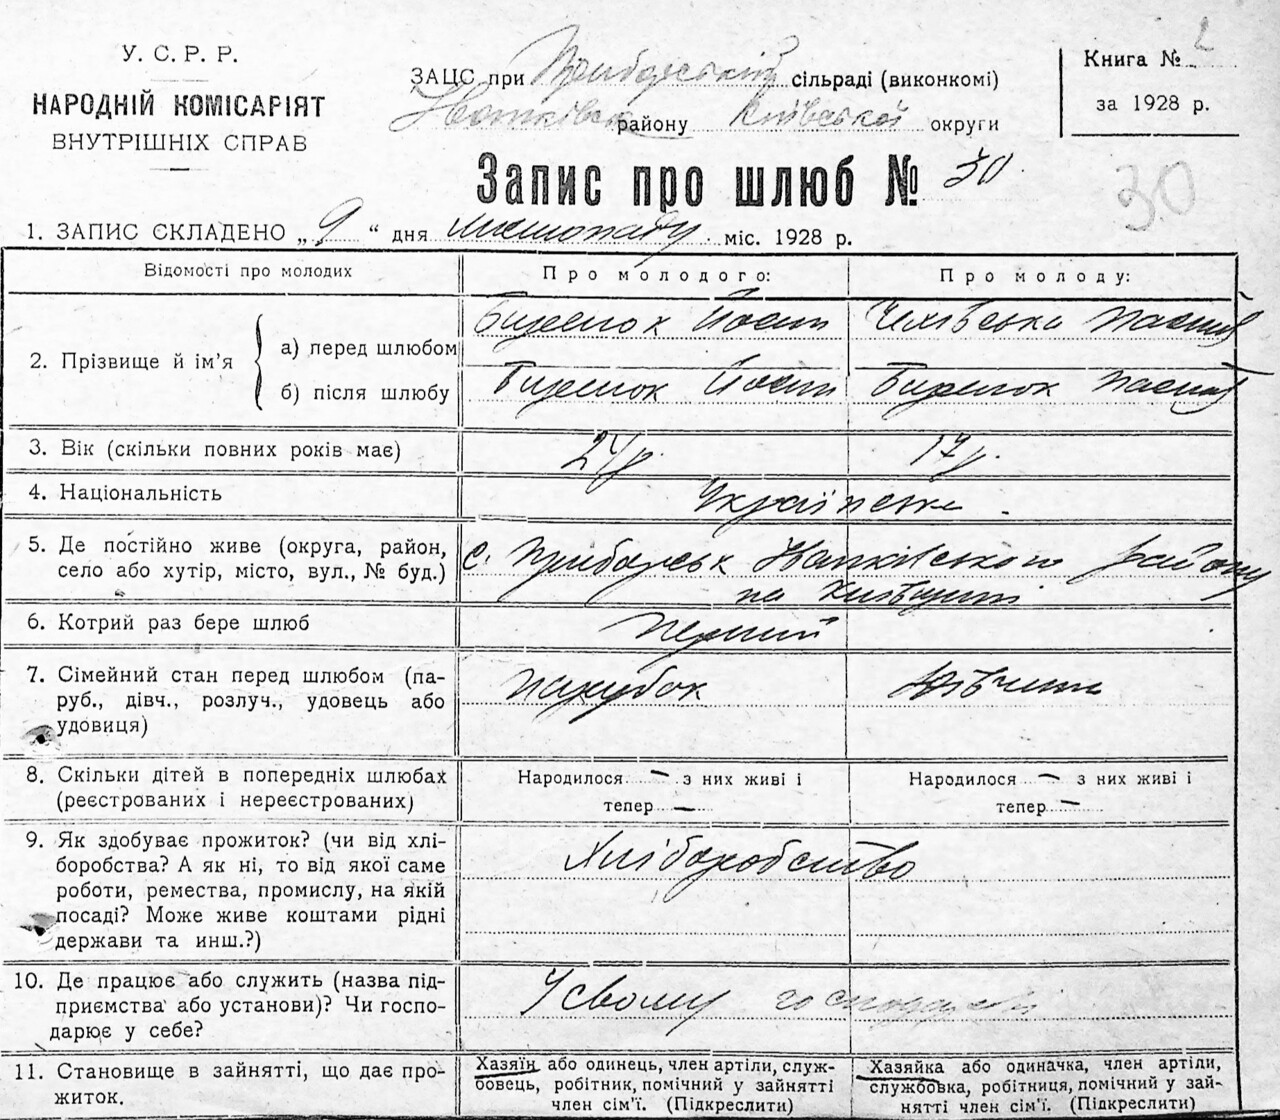 У. С. Р. Р.
НАРОДНІЙ КОМІСАРІЯТ
ВНУТРІШНІХ СПРАВ
ЗАЦС при Прибірській сільраді (виконкомі)
району Київської округи
Книга № 2
за 1928 р.
Запис про шлюб № 30
30
1. ЗАПИС СКЛАДЕНО „9“ дня листопаду міс. 1928 р.
Відомості про молодих
Про молодого:
Про молоду:
2. Прізвище й ім’я
а) перед шлюбом
б) після шлюбу
3. Вік (скільки повних років має)
24 р.
17 р.
4. Національність
Українська
5. Де постійно живе (округа, район,
село або хутір, місто, вул., № буд.)
с. району
на Київщині
6. Котрий раз бере шлюб
Перший
7. Сімейний стан перед шлюбом (па-
руб., дівч., розлуч., удовець або
удовиця)
Парубок
Дівчина
8. Скільки дітей в попередніх шлюбах
(реєстрованих і нереєстрованих)
Народилося — з них живі і
тепер —
Народилося — з них живі і
тепер —
9. Як здобуває прожиток? (чи від хлі-
боробства? А як ні, то від якої саме
роботи, ремества, промислу, на якій
посаді? Може живе коштами рідні
держави та инш.?)
Хліборобство
10. Де працює або служить (назва під-
приємства або установи)? Чи госпо-
дарює у себе?
У свому господарстві
11. Становище в зайнятті, що дає про-
житок.
Хазяїн або одинець, член артілі, служ-
бовець, робітник, помічний у зайнятті
член сім’ї. (Підкреслити)
Хазяйка або одиначка, член артіли,
службовка, робітниця, помічний у зай-
нятті член сім’ї. (Підкреслити)